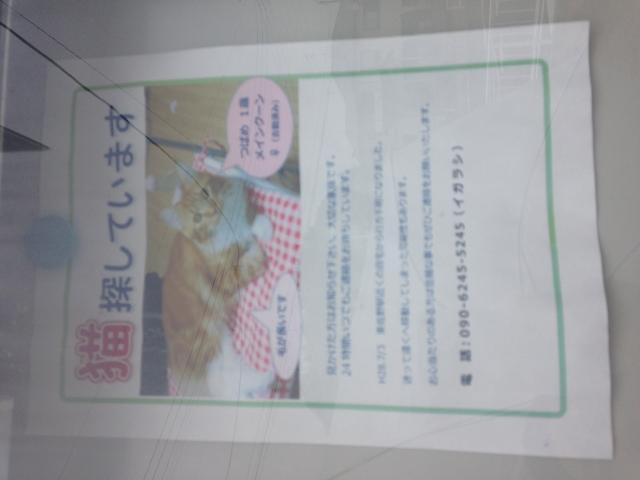 猫探しています
つばめ 1歳
メインクーン
♀(去勢済み)
毛が長いです
見かけた方はお知らせ下さい。大切な家族です。
24時間いつでもご連絡をお待ちしています。
H28.7/3
迷って遠くへ移動してしまった可能性もあります。
お心当たりのある方は些細な事でもぜひご連絡をお願いいたします。
電 話:090-6245-5245(イガラシ)